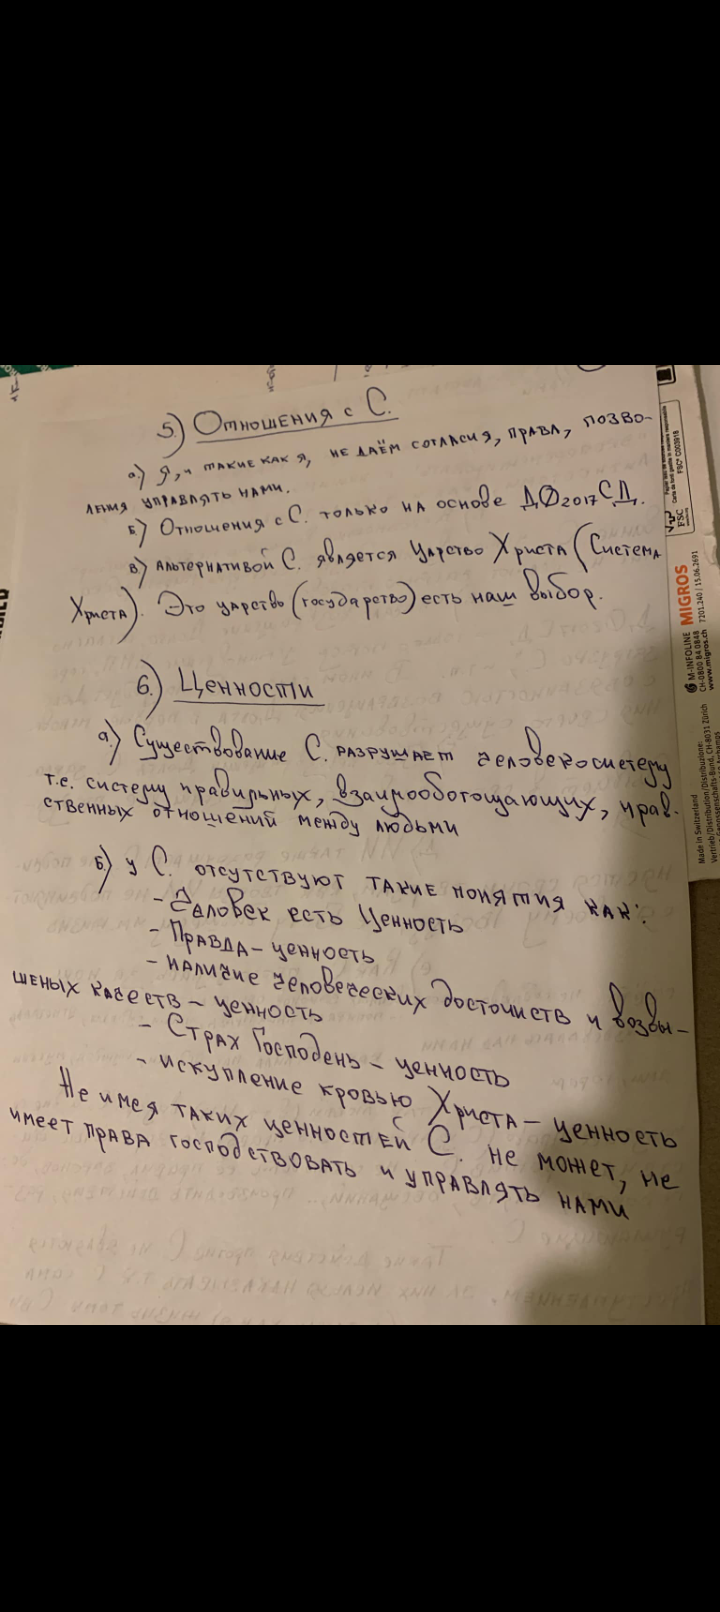 5.) Отношения с С.
а) Я, и такие как я, не даём согласия, права, позво-
ления управлять нами.
Б) Отношения с С. только на основе ДФ2017СД.
в) Альтернативой С. является Царство Христа (Система
Христа). Это царство (государство) есть наш выбор.
6.) Ценности
а.) Существование С. разрушает человекосистему
т.е. систему правильных, взаимообогощающих, нрав-
ственных отношений между людьми
Б) у С. отсутствуют такие понятия как:
- Человек есть Ценность
- Правда - ценность
- наличие человеческих достоинств и возвы-
шеных качеств - ценность
- Страх Господень - ценность
- искупление кровью Христа - ценность
Не имея таких ценностей С. не может, не
имеет права господствовать и управлять нами
FSC
FSC® C003918
MIGROS
7201.240 / 15.06.2691
M-INFOLINE
CH-0800 84 0848
www.migros.ch
Made in Switzerland
Vertrieb/Distribution/Distribuzione:
Migros-Genossenschafts-Bund, CH-8031 Zürich